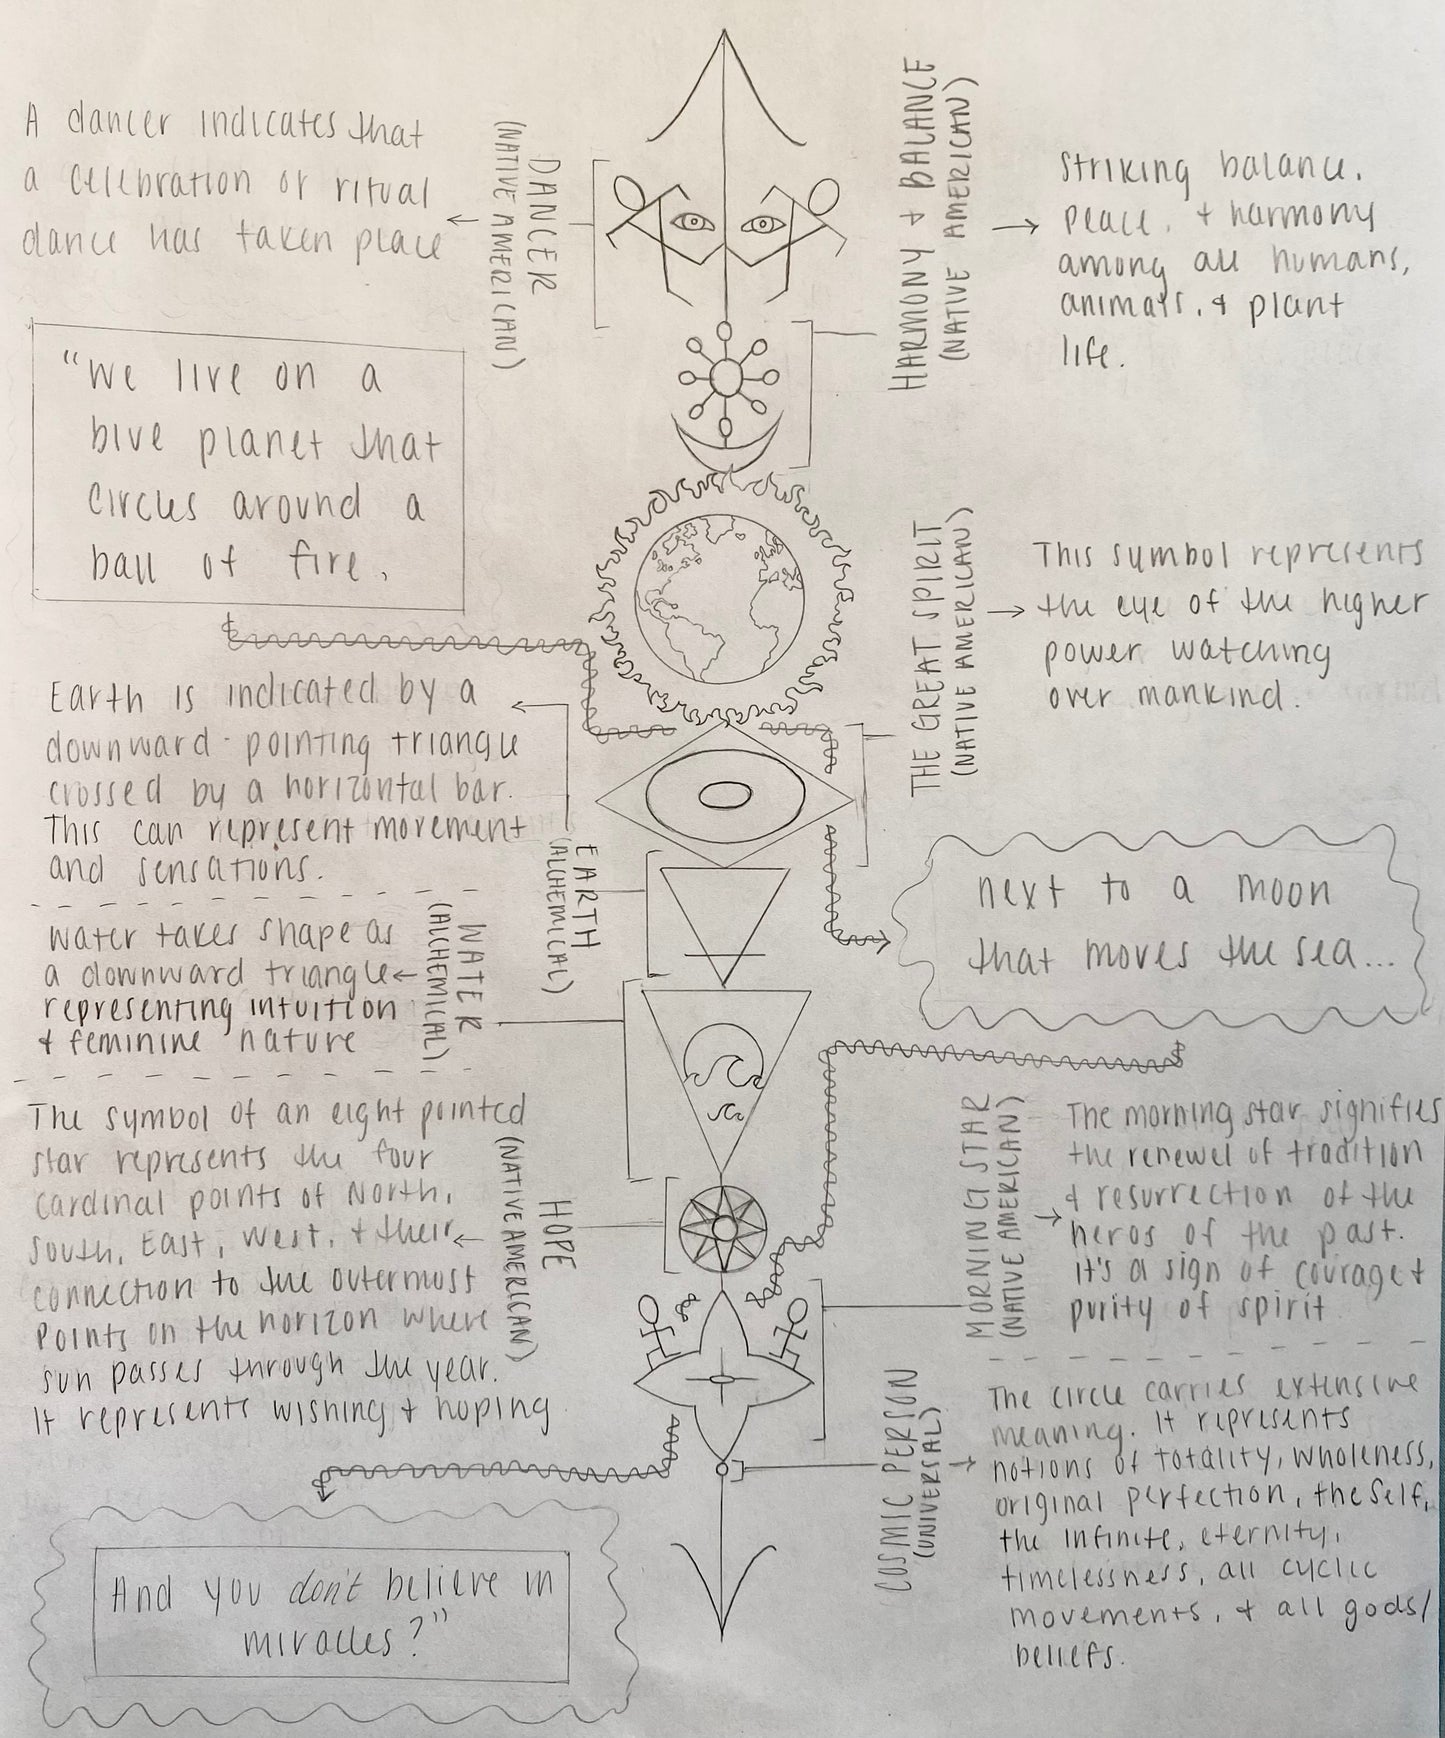 A dancer indicates that
a celebration or ritual
dance has taken place
DANCER
(NATIVE AMERICAN)
HARMONY + BALANCE
(NATIVE AMERICAN)
Striking balance,
peace, + harmony
among all humans,
animals, & plant
life.
"We live on a
blue planet that
circles around a
ball of fire,
THE GREAT SPIRIT
(NATIVE AMERICAN)
This symbol represents
the eye of the higher
power watching
over mankind.
Earth is indicated by a
downward-pointing triangle
crossed by a horizontal bar.
This can represent movement
and sensations.
EARTH
(ALCHEMICAL)
next to a moon
that moves the sea...
Water takes shape as
a downward triangle
representing intuition
+ feminine nature
WATER
(ALCHEMICAL)
The symbol of an eight pointed
star represents the four
cardinal points of North,
South, East, West, + their
connection to the outermost
points on the horizon where
sun passes through the year.
It represents wishing + hoping
HOPE
(NATIVE AMERICAN)
MORNING STAR
(NATIVE AMERICAN)
The morning star signifies
the renewel of tradition
+ resurrection of the
heros of the past.
It's a sign of courage +
purity of spirit
COSMIC PERSON
(UNIVERSAL)
The circle carries extensive
meaning. It represents
notions of totality, wholeness,
original perfection, the Self,
the infinite, eternity,
timelessness, all cyclic
movements, + all gods/
beliefs.
And you don't believe in
miracles?"